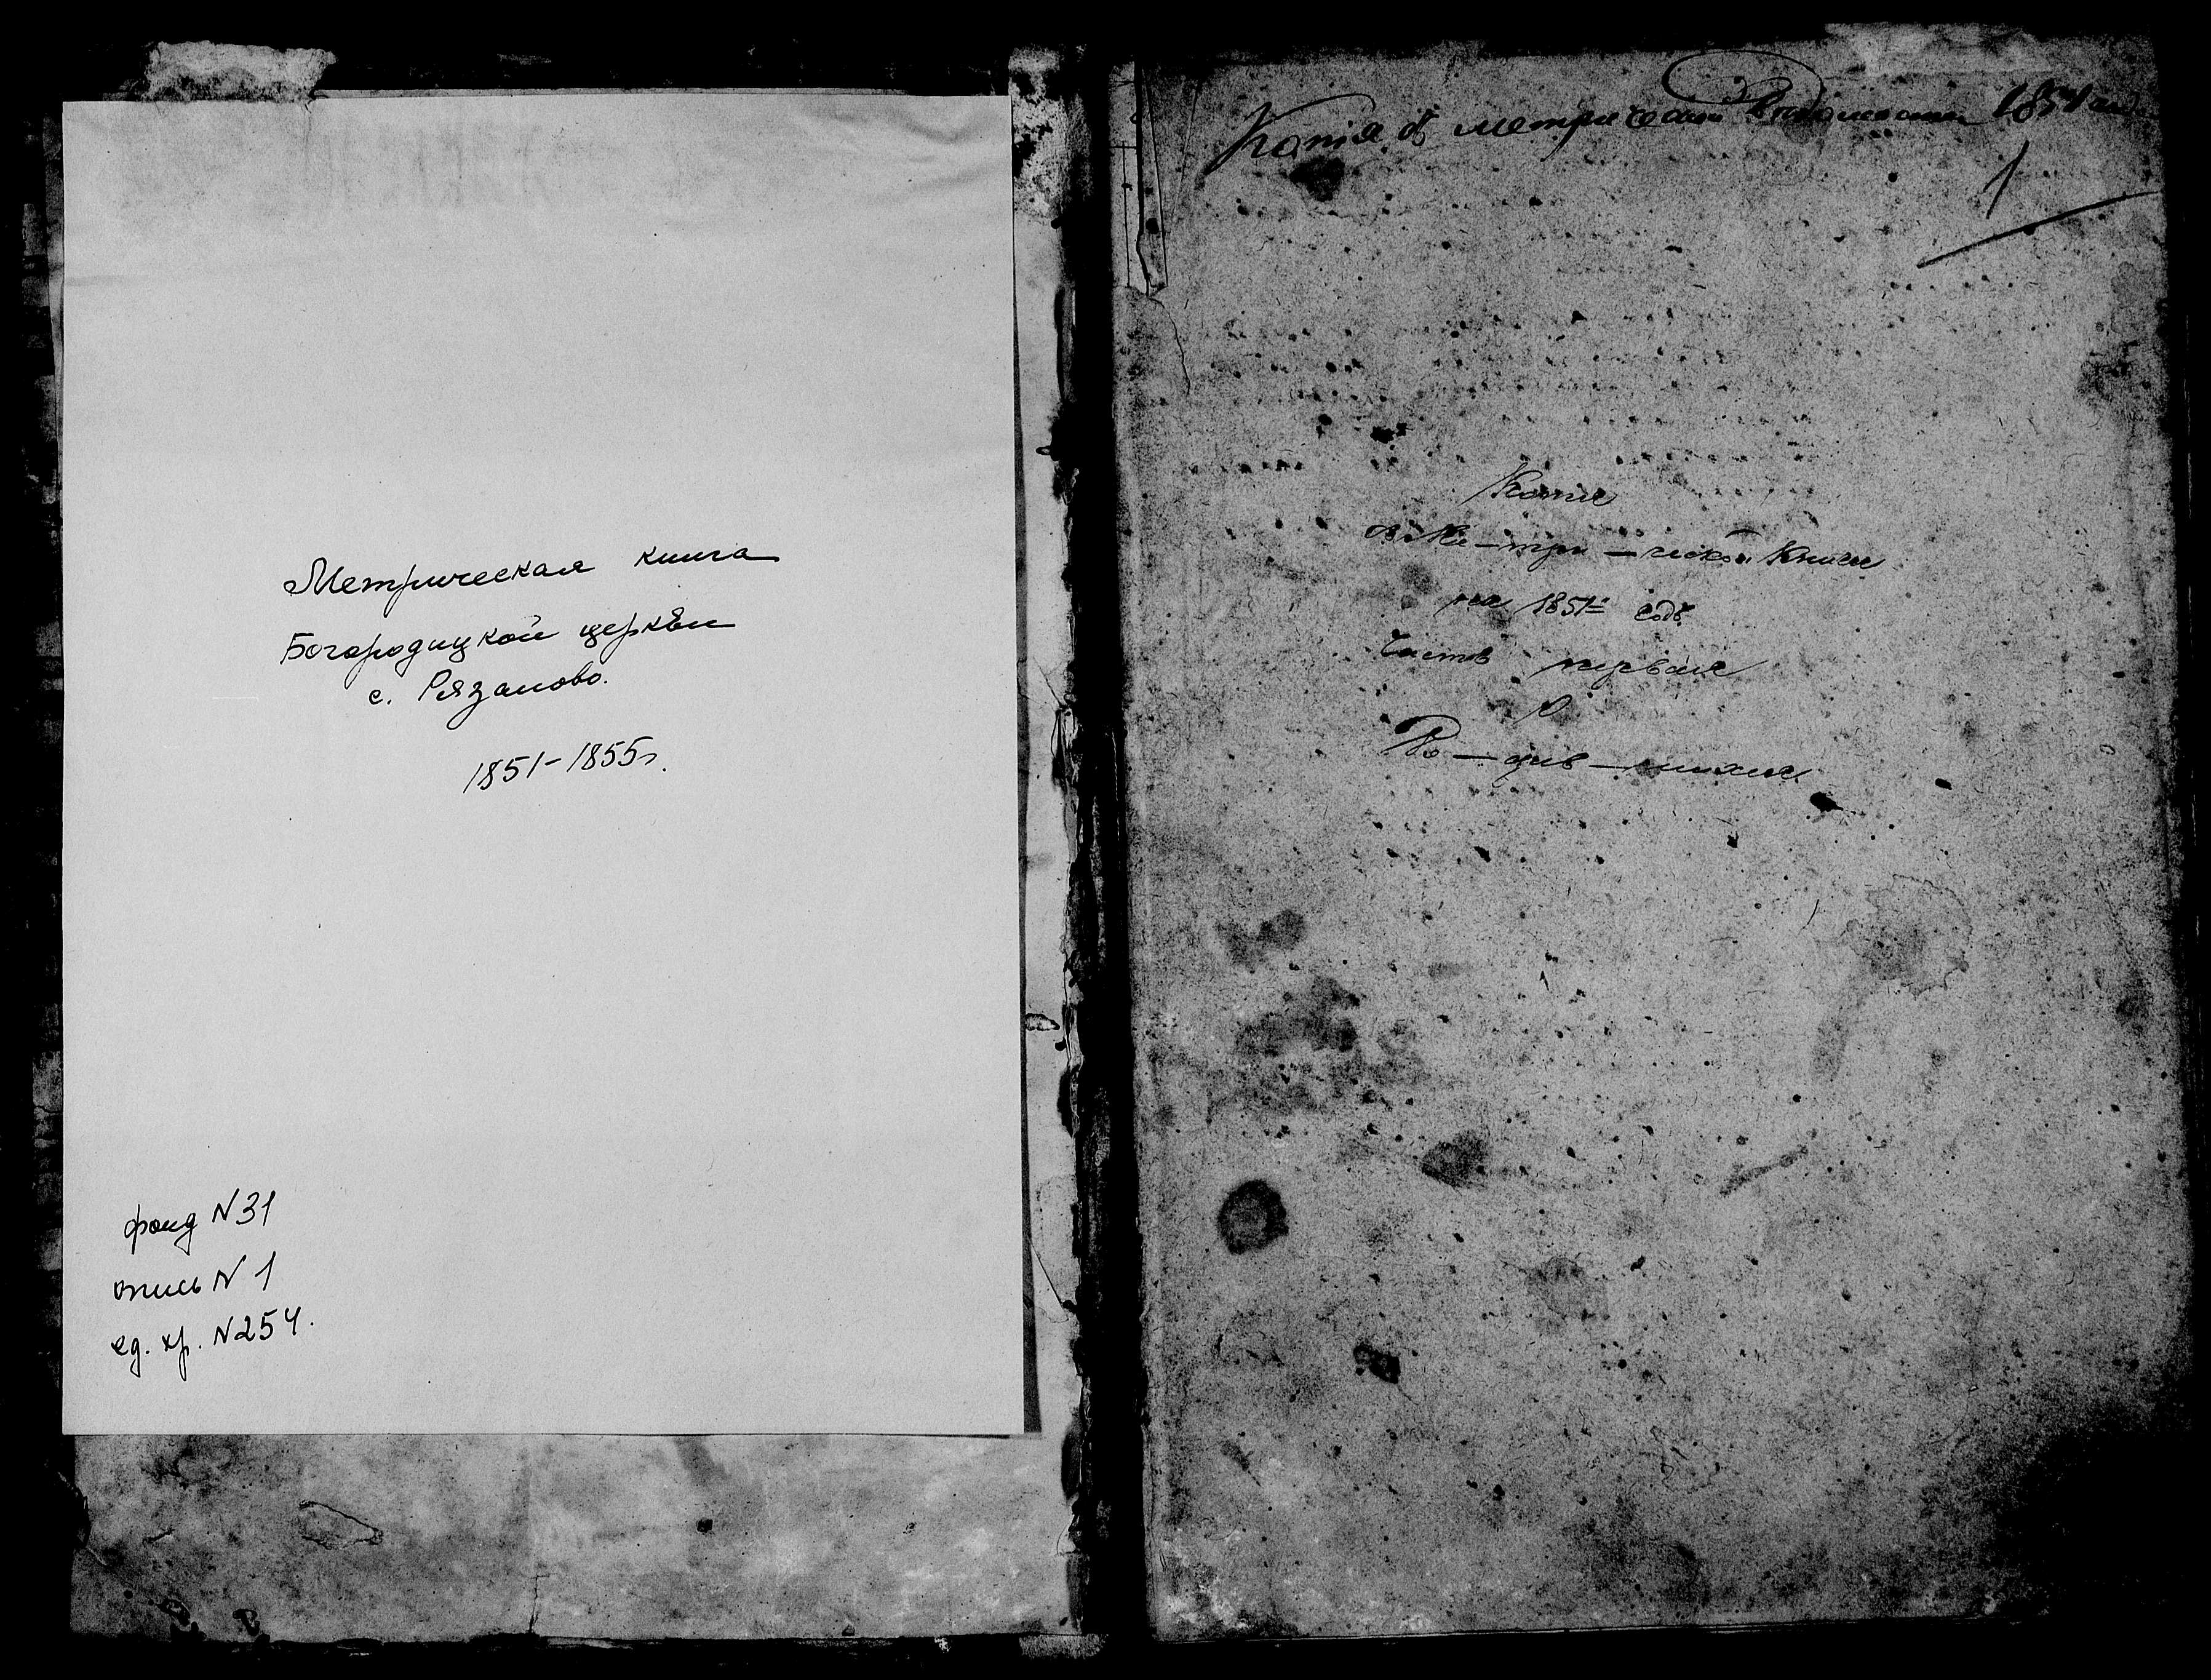 Метрическая книга
Богородицкой церкви
с. Рязаново.
1851-1855г.
фонд N31
опись N 1
ед. хр. N254.
Копія съ метрической Ведомости 1851 год
1
Копия
съ Ме-три-ческой Книги
на 1851й годъ
Часть первая
О
Ро-див-шихся